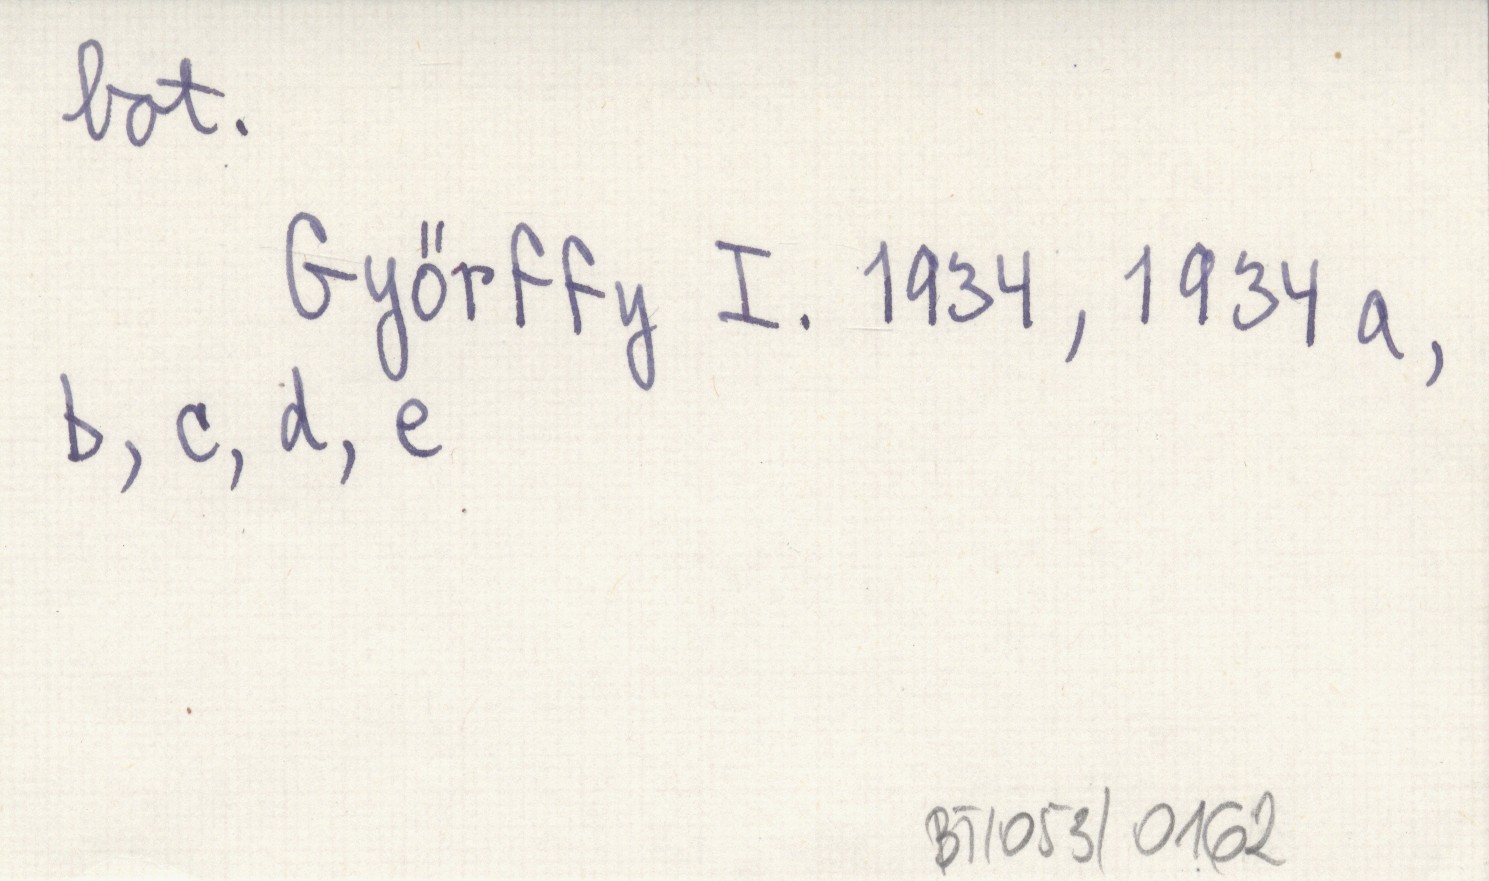 bot.
Győrffy I. 1934, 1934 a,
b, c, d, e
BT/053/0162